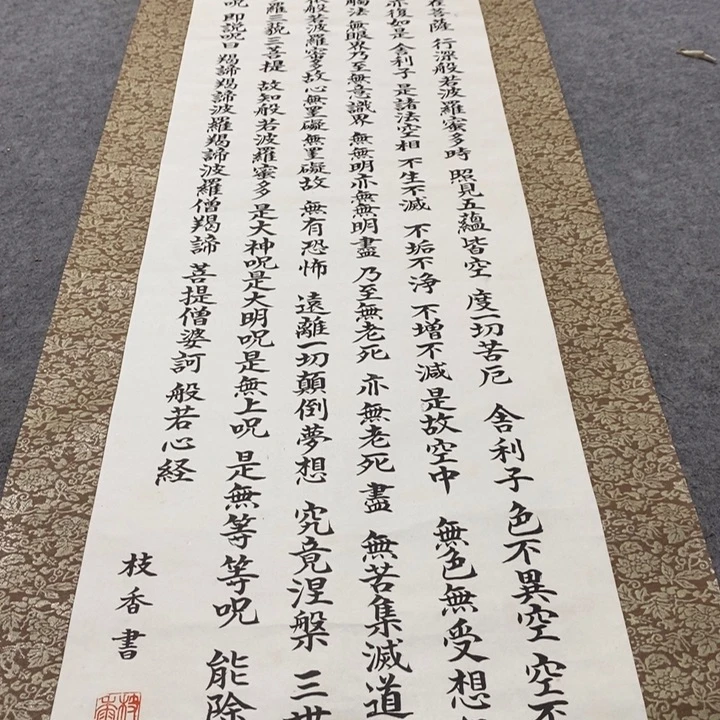 在菩薩 行深般若波羅蜜多時 照見五蘊皆空 度一切苦厄 舎利子 色不異空 空不
亦復如是 舎利子 是諸法空相 不生不滅 不垢不浄 不増不減 是故空中 無色無受想
觸法 無眼界乃至無意識界 無無明亦無無明盡 乃至無老死 亦無老死盡 無苦集滅道
般若波羅蜜多故心無罣礙無罣礙故 無有恐怖 遠離一切顛倒夢想 究竟涅槃 三世
羅三藐三菩提 故知般若波羅蜜多 是大神呪是大明呪是無上呪 是無等等呪 能除
呪 即説呪曰 羯諦羯諦波羅羯諦波羅僧羯諦 菩提僧婆訶 般若心経
枝香書